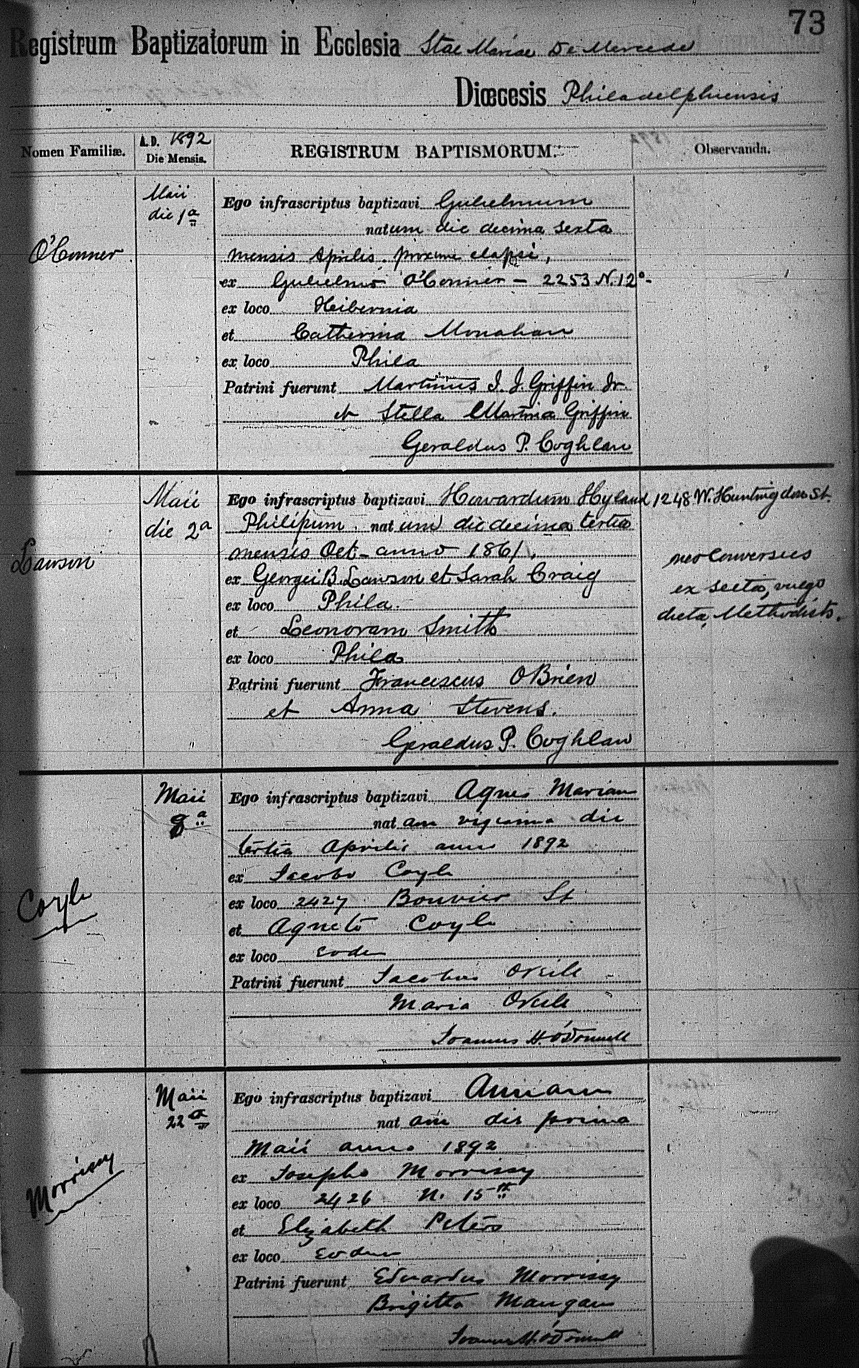 73
Registrum Baptizatorum in Ecclesia Stae Mariae De Mercede
Diœcesis Philadelphiensis
Nomen Familiæ.
A.D. 1892
Die Mensis.
REGISTRUM BAPTISMORUM.
Observanda.
O'Conner
Maii
die 1a
Ego infrascriptus baptizavi Gulielmum
natum die decima sexta
mensis Aprilis proxime elapsi,
ex Gulielmo O'Conner - 2253 N. 12
ex loco Hibernia
et Catherina Monahan
ex loco Phila
Patrini fuerunt Martinus I. J. Griffin Jr
et Stella Martina Griffin
Geraldus P. Coghlan
Lawson
Maii
die 2a
Ego infrascriptus baptizavi Howardum Hyland 1248 W. Huntingdon St.
Philipum natum die decima tertia
mensis Oct- anno 1861.
ex Georgei B. Lawson et Sarah Craig
ex loco Phila.
et Leonoram Smith
ex loco Phila
Patrini fuerunt Franciscus OBrien
et Anna Stevens.
Geraldus P. Coghlan
neo conversus
ex secta, vulgo
dicta, Methodists.
Coyle
Maii
8a
Ego infrascriptus baptizavi Agnes Mariam
natam vigesima die
tertia Aprilis anno 1892
ex Jacobo Coyle
ex loco 2427 Bouvier St
et Agneta Coyle
ex loco eodem
Patrini fuerunt Jacobus ONeill
Maria ONeill
Joannes H O'Donnell
Morrissy
Maii
22a
Ego infrascriptus baptizavi Annam
natam die prima
Maii anno 1892
ex Josepho Morrissy
ex loco 2426 N. 15th
et Elizabeth Peters
ex loco eodem
Patrini fuerunt Eduardus Morrissy
Brigitta Mangan
Joannes H O'Donnell